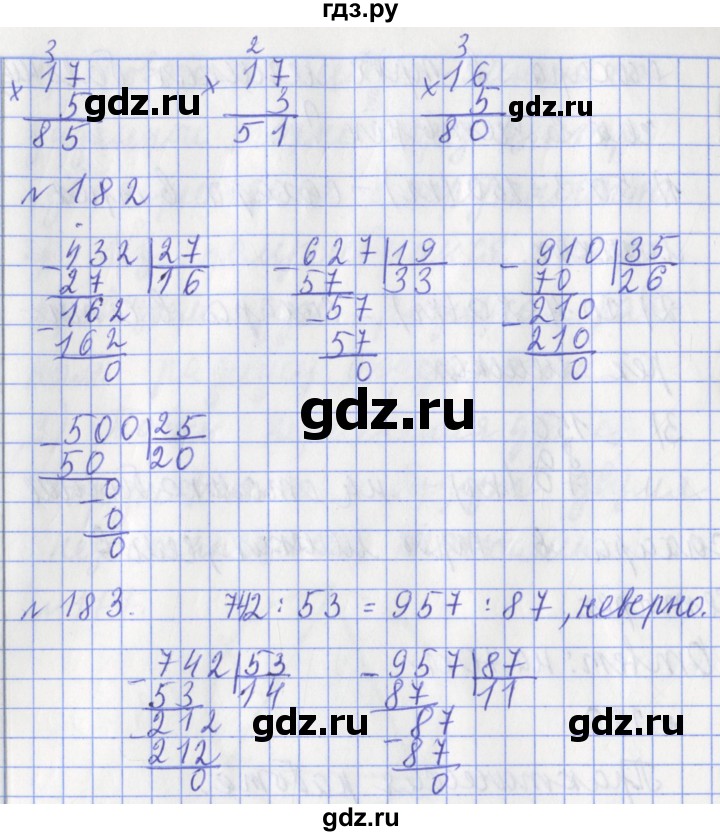 гдз.ру
3 2 3
× 17 × 17 × 16
5 3 5
gdz.ru gdz.ru
85 51 80
№ 182
- 432 | 27 - 627 | 19 - 910 | 35
27 | 16 57 | 33 70 | 26
- 162 - 57 - 210
162 57 210
0 0 0
gdz.ru
- 500 | 25
50 | 20
- 0
0
0
№ 183. 742 : 53 = 957 : 87, неверно.
- 742 | 53 - 957 | 87
53 | 14 87 | 11
- 212 - 87
212 87
0 0
gdz.ru gdz.ru
gdz.ru